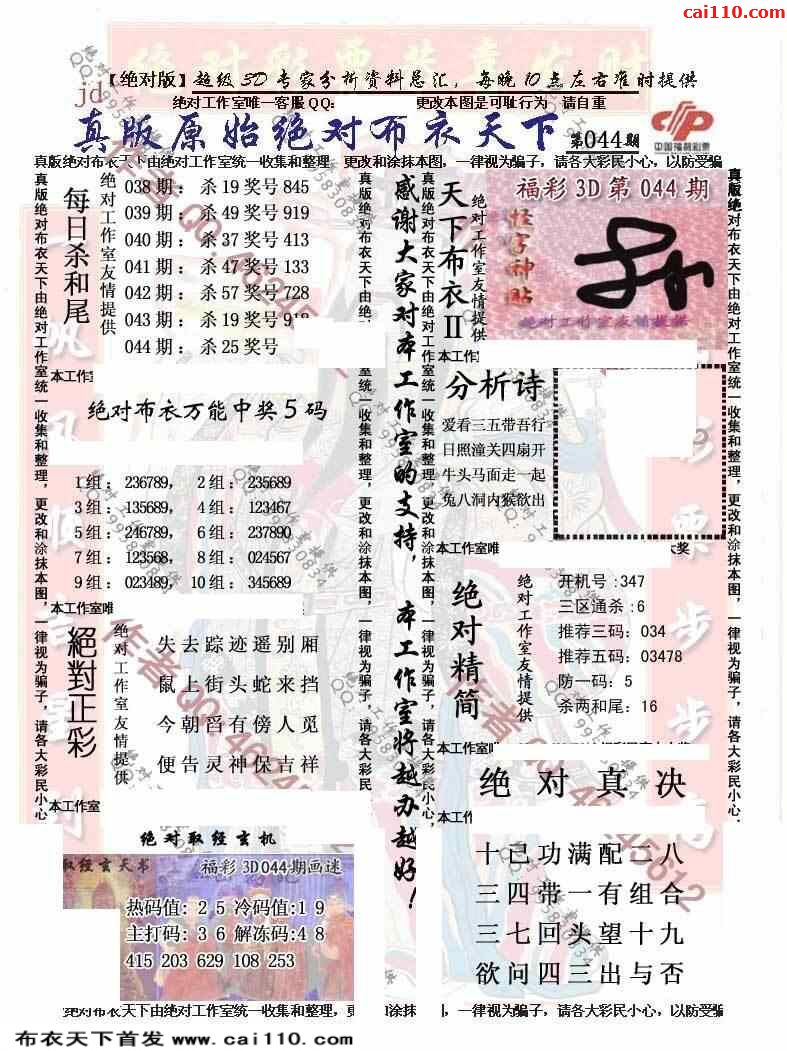 cai110.com
【绝对版】超级3D专家分析资料总汇，每晚10点左右准时提供
jd
绝对工作室唯一客服QQ： 更改本图是可耻行为 请自重
真版原始绝对布衣天下 第044期
中国福利彩票
真版绝对布衣天下由绝对工作室统一收集和整理，更改和涂抹本图，一律视为骗子，请各大彩民小心，以防受骗
每日杀和尾
绝对工作室友情提供
038期：杀19奖号845
039期：杀49奖号919
040期：杀37奖号413
041期：杀47奖号133
042期：杀57奖号728
043期：杀19奖号918
044期：杀25奖号
本工作室
绝对布衣万能中奖5码
1组：236789， 2组：235689
3组：135689， 4组：123467
5组：246789， 6组：237890
7组：123568， 8组：024567
9组：023489， 10组：345689
本工作室唯
絕對正彩
绝对工作室友情提供
失去踪迹遥别厢
鼠上街头蛇来挡
今朝蹈有傍人觅
便告灵神保吉祥
本工作室
绝对取经玄机
取经玄天书 福彩3D044期画迷
热码值：25冷码值:19
主打码：36解冻码:48
415 203 629 108 253
真版绝对布衣天下由绝对工作室统一收集和整理，更改和涂抹本图，一律视为骗子，请各大彩民小心，
感谢大家对本工作室的支持，本工作室将越办越好！
天下布衣II
绝对工作室友情提供
福彩3D第044期
怪字神贴
绝对工作室友情提供
本工作
分析诗
爱看三五带吾行
日照潼关四扇开
牛头马面走一起
兔八洞内猴欲出
本工作室唯
大奖
绝对精简
绝对工作室友情提供
开机号:347
三区通杀:6
推荐三码：034
推荐五码：03478
防一码：5
杀两和尾：16
本工作室唯
绝对真决
本工作
十己功满配二八
三四带一有组合
三七回头望十九
欲问四三出与否
绝对布衣天下由绝对工作室统一收集和整理，更和涂抹 ，一律视为骗子，请各大彩民小心，以防受骗
布衣天下首发 www.cai110.com